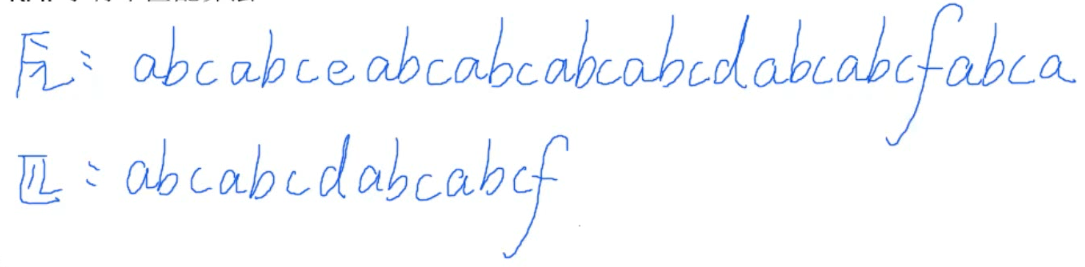 原：abcabceabcabcabcabcdabcabcfabca
匹：abcabcdabcabcf